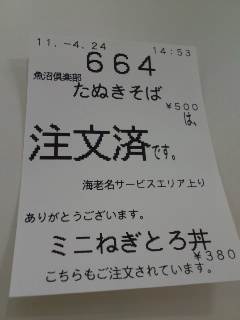 11.-4.24 14:53
664
魚沼倶楽部
たぬきそば
¥500
は、
注文済です。
海老名サービスエリア上り
ありがとうございます。
ミニねぎとろ丼
¥380
こちらもご注文されています。